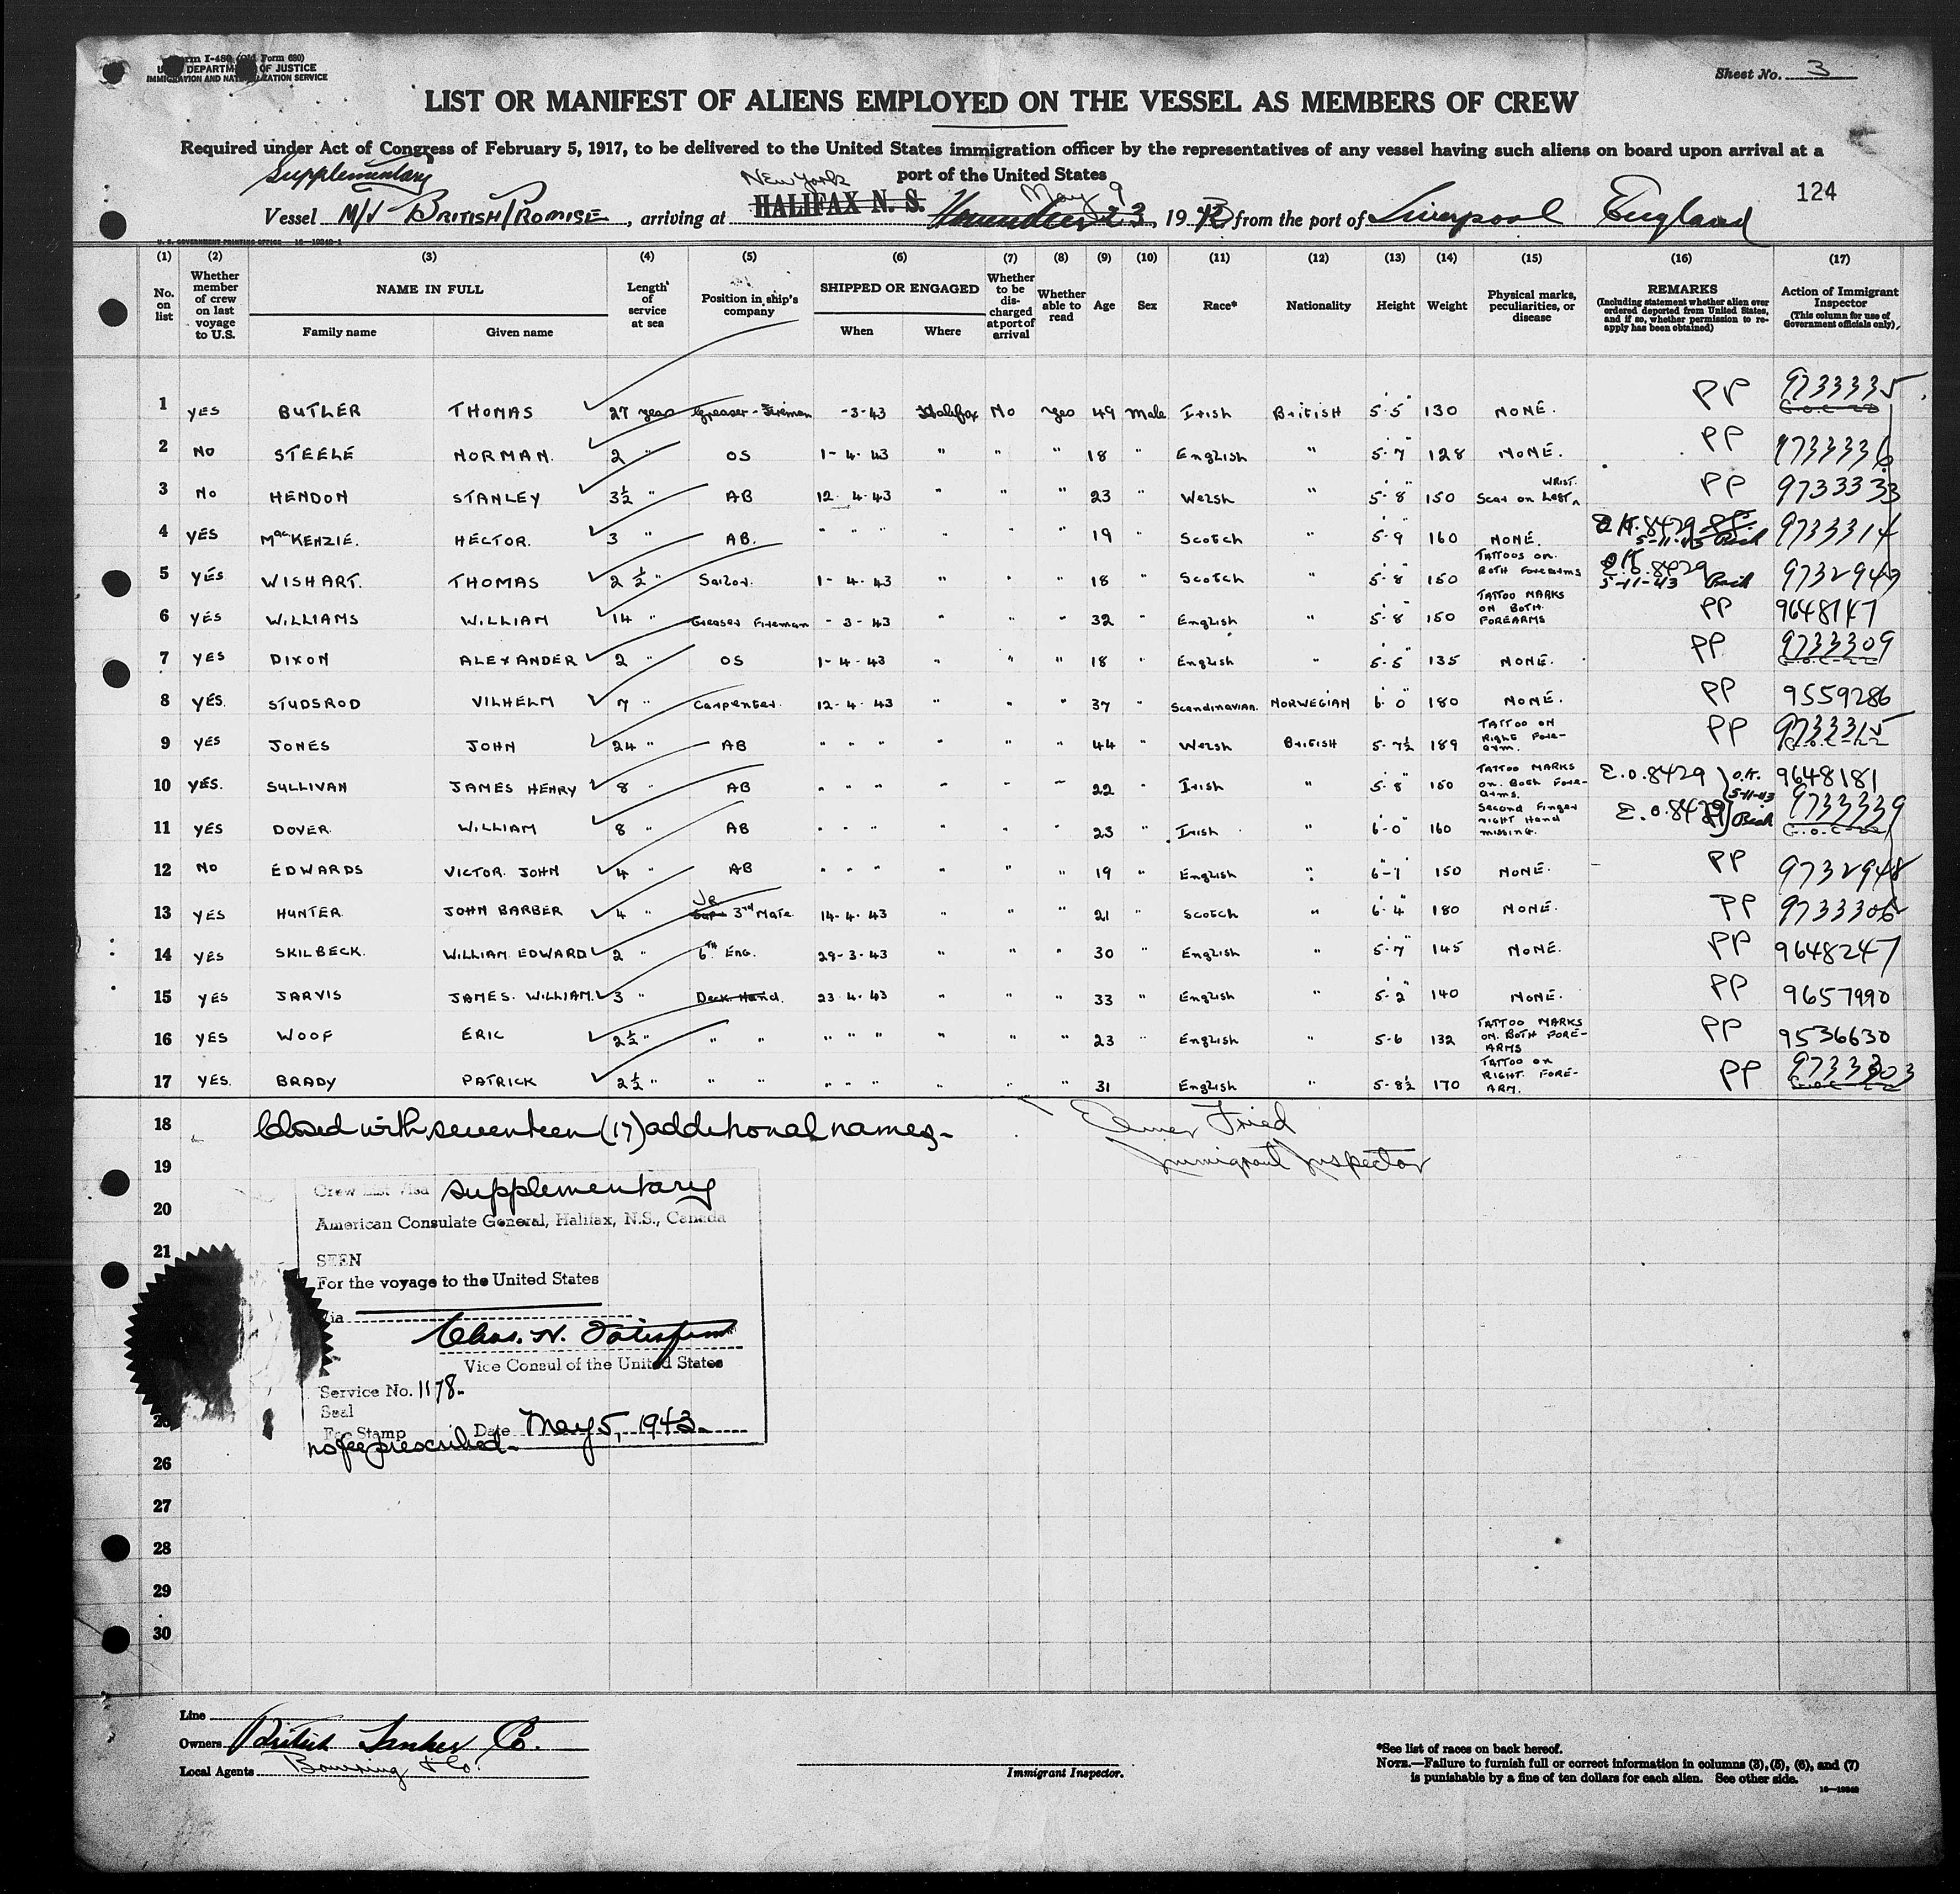 Form I-480 (Old Form 680)
U. S. DEPARTMENT OF JUSTICE
IMMIGRATION AND NATURALIZATION SERVICE
Sheet No. 3
LIST OR MANIFEST OF ALIENS EMPLOYED ON THE VESSEL AS MEMBERS OF CREW
Required under Act of Congress of February 5, 1917, to be delivered to the United States immigration officer by the representatives of any vessel having such aliens on board upon arrival at a
port of the United States
Supplementary
New York May 9
124
Vessel M/V BRITISH PROMISE, arriving at HALIFAX N. S. 23, 1943 from the port of Liverpool England
U. S. GOVERNMENT PRINTING OFFICE 16-19240-1
(1) (2) (3) (4) (5) (6) (7) (8) (9) (10) (11) (12) (13) (14) (15) (16) (17)
No. on list
Whether member of crew on last voyage to U.S.
NAME IN FULL
Family name Given name
Length of service at sea
Position in ship's company
SHIPPED OR ENGAGED
When Where
Whether to be discharged at port of arrival
Whether able to read
Age Sex Race* Nationality Height Weight
Physical marks, peculiarities, or disease
REMARKS
(Including statement whether alien ever ordered deported from United States, and if so, whether permission to reapply has been obtained)
Action of Immigrant Inspector
(This column for use of Government officials only)
1 YES BUTLER THOMAS 27 years Greaser - Fireman -3-43 Halifax No Yes 49 Male Irish British 5'5" 130 NONE. PP 9733335 G.O.C-22
2 No STEELE NORMAN. 2 " OS 1-4-43 " " " 18 " English " 5'7" 128 NONE. PP 9733336
3 No HENDON STANLEY 3½ " AB 12-4-43 " " " 23 " Welsh " 5'8" 150 Scar on Left WRIST. PP 9733333
4 YES MacKENZIE. HECTOR. 3 " AB. " " " " " " 19 " Scotch " 5'9" 160 NONE. O.K. 8429 5-11-43 9733314
5 YES WISHART. THOMAS 2½ " Sailor. 1-4-43 " " " 18 " Scotch " 5'8" 150 TATTOOS on BOTH Forearms 8429 5-11-43 9732949
6 YES WILLIAMS WILLIAM 14 " Greaser Fireman -3-43 " " " 32 " English " 5'8" 150 TATTOO MARKS ON BOTH FOREARMS PP 9648147
7 YES DIXON ALEXANDER 2 " OS 1-4-43 " " " 18 " English " 5'5" 135 NONE. PP 9733309 G.O.C-22
8 YES. STUDSROD VILHELM 7 " Carpenter. 12-4-43 " " " 37 " Scandinavian. NORWEGIAN 6'0" 180 NONE. PP 9559286
9 YES JONES JOHN 24 " AB " " " " " " 44 " Welsh British 5-7½ 189 TATTOO ON Right Forearm. PP 9733315 G.O.C-22
10 YES. SULLIVAN JAMES HENRY 8 " AB " " " " " " 22 " Irish " 5'8" 150 TATTOO MARKS on Both Forearms. E.O.8429 O.K. 9648181
11 YES DOVER WILLIAM 8 " AB " " " " " " 23 " Irish " 6'0" 160 Second Finger right Hand missing. E.O.8429 5-11-43 9733339 G.O.C-22
12 No EDWARDS VICTOR JOHN 4 " AB " " " " " " 19 " English " 6-1 150 NONE. PP 9732948
13 YES HUNTER JOHN BARBER 4 " JR 3rd Mate 14-4-43 " " " 21 " Scotch " 6'4" 180 NONE. PP 9733306
14 YES SKILBECK. WILLIAM EDWARD 2 " 6TH ENG. 29-3-43 " " " 30 " English " 5'7" 145 NONE. PP 9648247
15 YES JARVIS JAMES. WILLIAM. 3 " Deck Hand. 23-4-43 " " " 33 " English " 5'2" 140 NONE. PP 9657990
16 YES WOOF ERIC 2½ " " " " " " " " " 23 " English " 5-6 132 TATTOO MARKS ON BOTH FOREARMS PP 9536630
17 YES. BRADY PATRICK 2½ " " " " " " " " " 31 English " 5-8½ 170 TATTOO on RIGHT FOREARM. PP 9733303 G.O.C-22
18 Closed with seventeen (17) additional names. Elmer Fried
19 Immigrant Inspector
Crew List Visa supplementary
20
American Consulate General, Halifax, N.S., Canada
21
SEEN
For the voyage to the United States
Via
Chas. N.
Vice Consul of the United States
Service No. 1178-
Seal
Fee Stamp Date May 5, 1943
no fee prescribed-
26
27
28
29
30
Line
Owners British Tanker Co.
Local Agents Bowring & Co.
Immigrant Inspector.
*See list of races on back hereof.
NOTE.—Failure to furnish full or correct information in columns (3), (5), (6), and (7)
is punishable by a fine of ten dollars for each alien. See other side.
16—19240